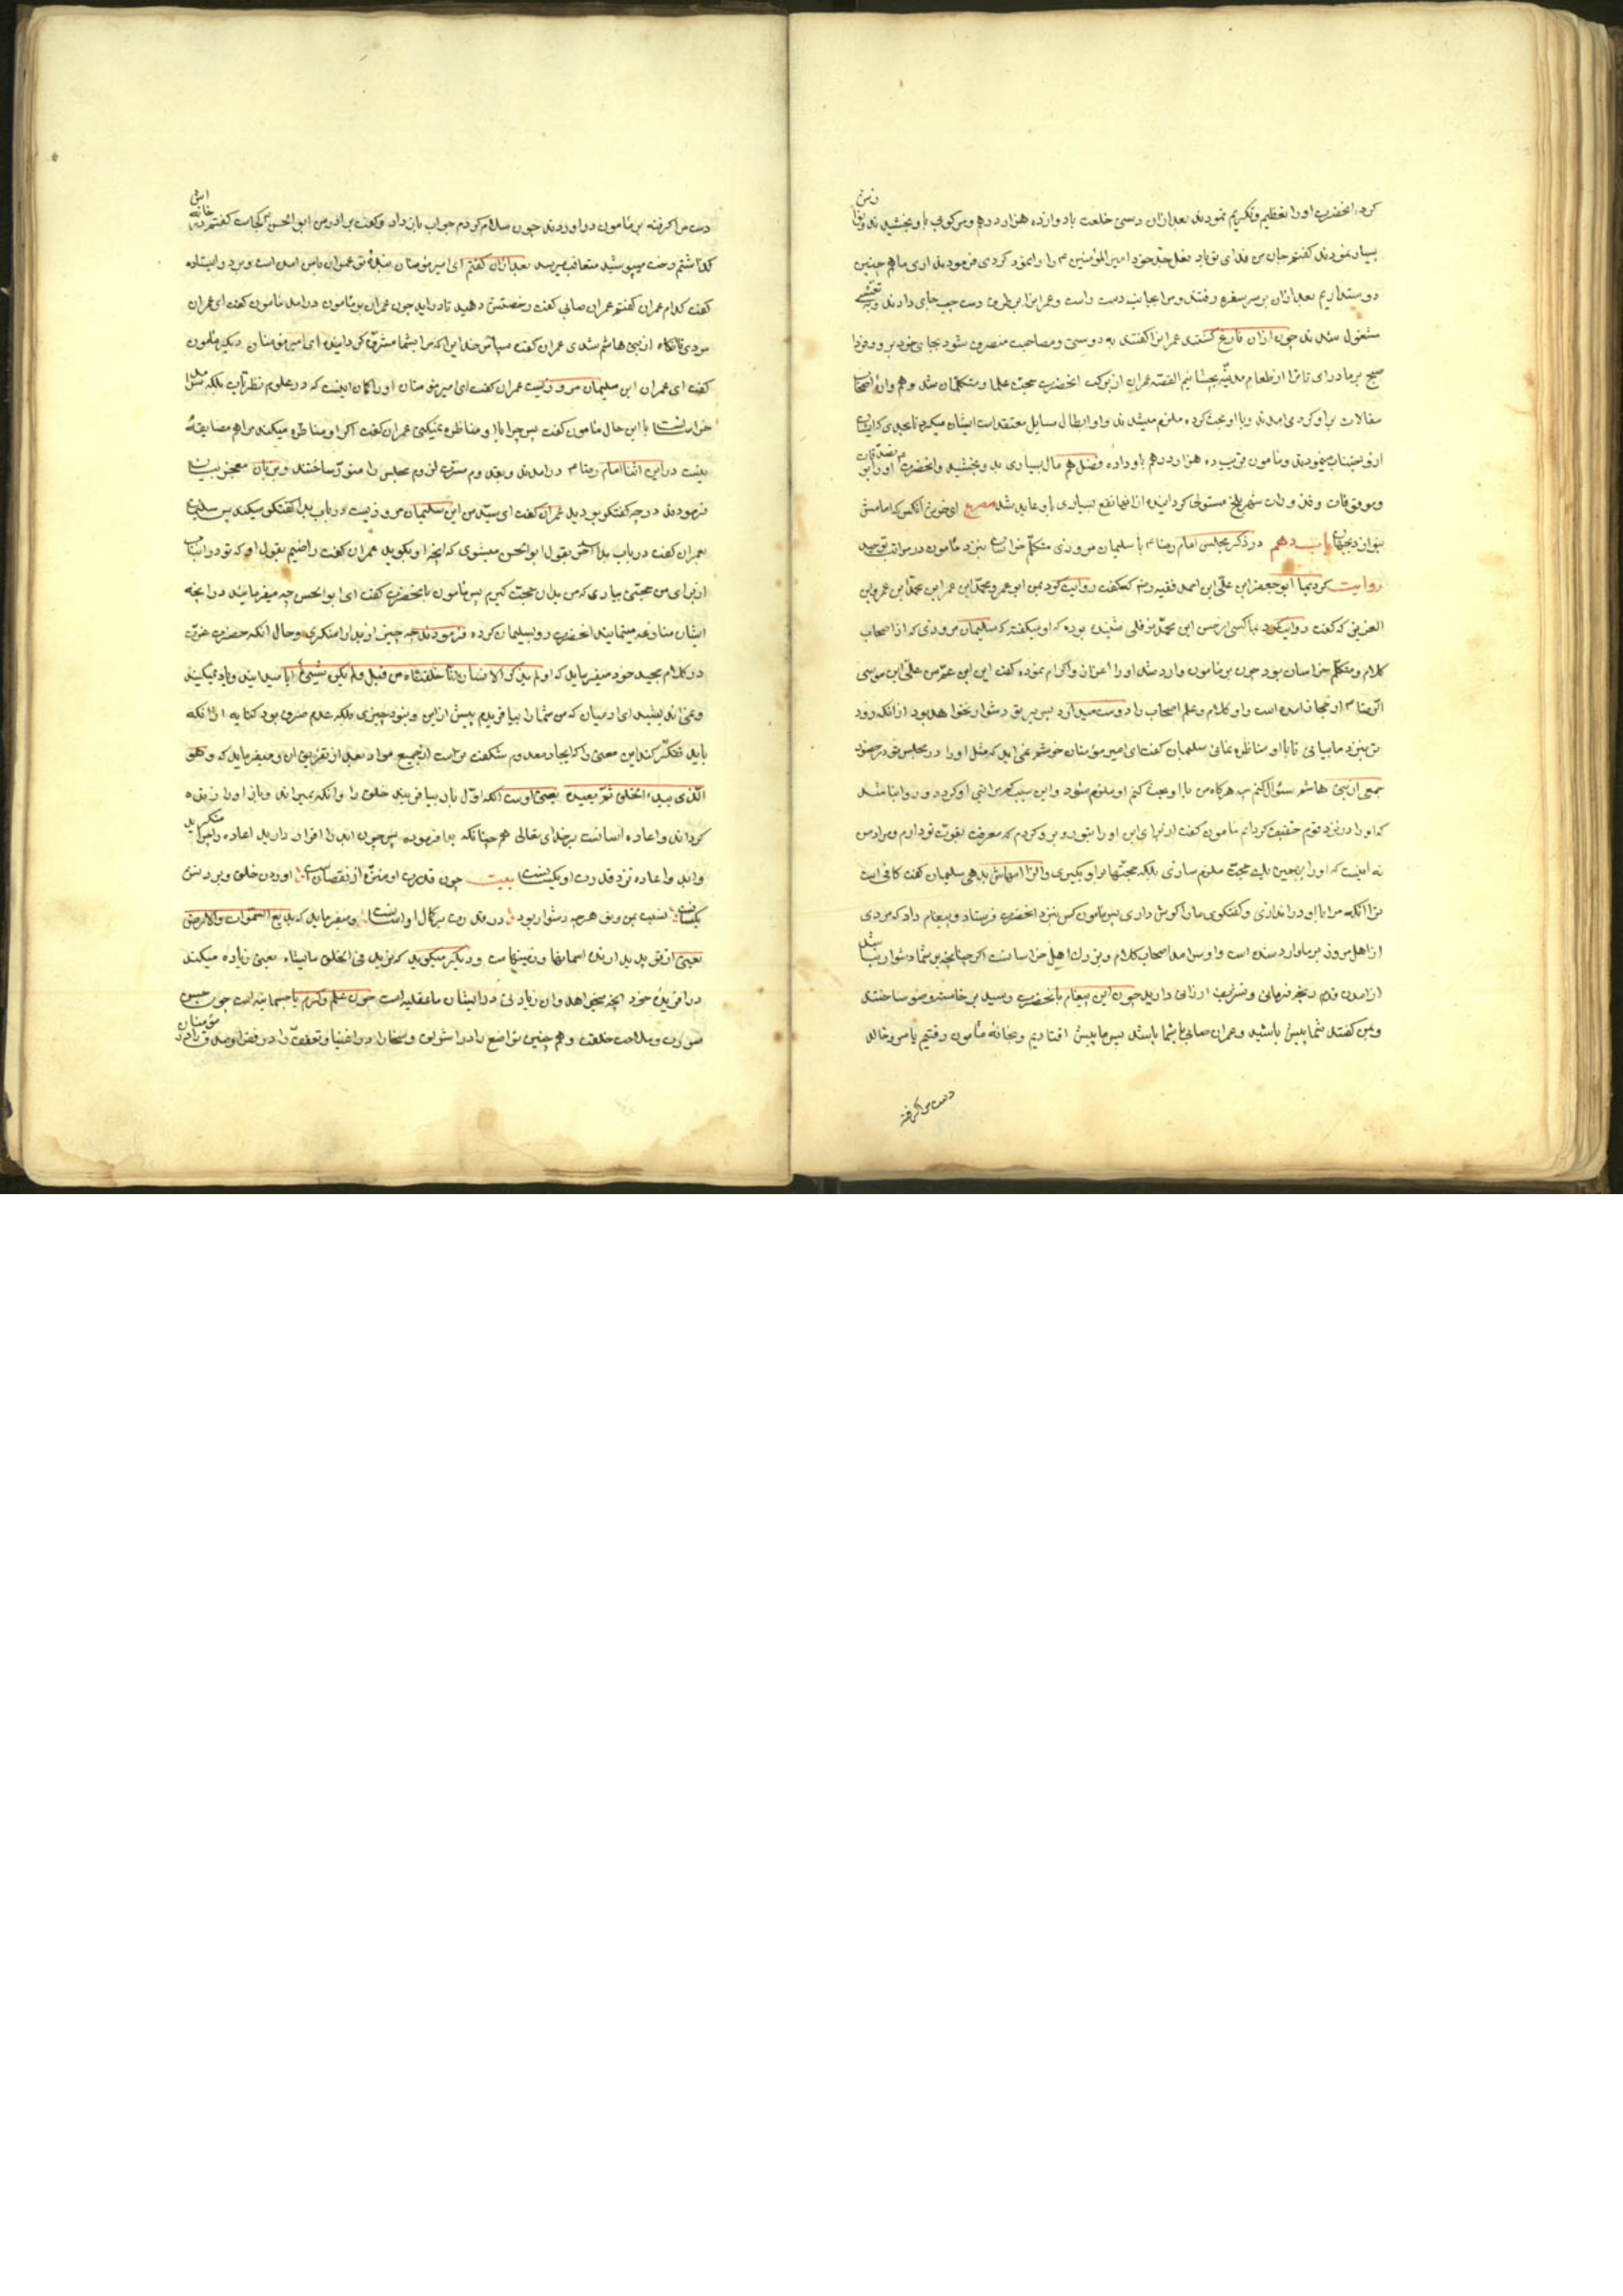 کرد، انحضرت اورا تعظیم و تکریم نمودند بعد ازان دستی خلعت باد وازده هزار درهم ومرکوبی باو بخشیدند و نوازش
بسیار نمودند کفتم جان من فدای تو باد بفعل جد خود امیر المؤمنین ع مرا وانمود کردی فرمودند اری ما هم چنین
دوستداریم بعد ازان بر سر سفره رفتند ومرا بجانب دست راست وعمرانرا بطرف دست چپ جای دادند و به تعشی
مشغول شدند چون ازان فارغ کشتند عمرانرا کفتند به دوستی ومصاحبت منصرف شو بجای خود برو وفردا
صبح بر ما درای تا ترا از طعام مدینه بچشانیم القصه عمران از برکت انحضرت صحبت علما ومتکلمان شد وهروان اصحاب
مقالات بر او کرد می امدند وبا او بحث کرده ملزم میشدند واو ابطال مسایل معتقدات ایشان میکرد تا بحدی که ایشان
ازو اجتناب مینمودند ومامون قریب ده هزار درهم باو داده وفضل هم مال بسیاری بدو بخشید وانحضرت اورا بر تصدقات
وموقوفات وغلات شهر بلخ مستولی کردانیده از انها نفع بسیاری باو عاید شد مصرع ای خوش آنکس که امامش
بنوازد بجهان باب دهم در ذکر مجلس امام رضا ع با سلیمان مروزی متکلم خراسان نزد مأمون در مراتب توحید
روایت کرد بما ابو جعفر ابن علی ابن احمد فقیه رض که کفت روایت کرد بمن ابو عمرو محمد ابن عمر ابن محمد ابن عمرو بن
العزیز که کفت روایت کرد بما کسی از حسن ابن محمد نوفلی شنیده بوده که او میکفته که سلیمان مروزی که از اصحاب
کلام ومتکلم خراسان بود چون بر مامون وارد شد اورا اعزاز واکرام نموده کفت این ابن عم من علی ابن موسی
الرضا ع از حجاز امده است واو کلام وعلم اصحاب را دوست میدارد پس بر تو دشوار نخواهد بود از انکه روز
تو نزد ما بیائی تا با او مناظره نمائی سلیمان کفت ای امیر مؤمنان خوشم نمی اید که مثل اورا در مجلس تو در حضور
جمعی از بنی هاشم سئوال کنم چه هرکاه من با او بحث کنم او ملزم شود واین سبب کسر مراتب او کردد وروا نباشد
که اورا در نزد قوم خفیف کردانم مامون کفت از برای این اورا بتو روبرو کردم که معرفت بقوت تو دارم ومراد من
نه اینست که اورا بهمین یک حجت ملزم سازی بلکه حجتها بر او بکیری والزامهاش بدهی سلیمان کفت کافی است
ترا انکه مرا با او در اندازی وکفتکوی مارا کوش داری پس مامون کس نزد انحضرت فرستاد وپیغام داد که مردی
از اهل مرو نزد بر ما وارد شده است واو سرامد اصحاب کلام وبزرک اهل خراسانست اکر چنانچه بر شما دشوار نباشد
از امدن قدم رنجه فرمائی وتشریف ارزانی دارید چون این پیغام بانحضرت رسید برخاسته وضو ساختند
وبمن کفتند شما پیش باشید وعمران صابی با شما باشد پس ما پیش افتادیم وبخانه مأمون رفتیم یاسر وخالد
دست مرا کرفته
دست مرا کرفته بر مامون در اوردند چون سلام کردم جواب باز داد وکفت برادر من ابو الحسن کجاست کفتم در خانه اش
کذاشتم رخت میپوشید متعاقب میرسد بعد ازان کفتم ای امیر مؤمنان بندهٔ تو عمران با من امده است وبر در ایستاده
کفت کدام عمران کفتم عمران صابی کفت رخصتش دهید تا دراید چون عمران بر مامون درامد مامون کفت ای عمران
مردی تا انکاه از بنی هاشم شدی عمران کفت سپاس خدایرا که مرا بشما مشرف کردانیده ای امیر مؤمنان دیکر مأمون
کفت ای عمران این سلیمان مروزیست عمران کفت ای امیر مؤمنان اورا کمان اینست که در علوم نظر تاب بلکه سرامد
خراسانست با این حال مامون کفت پس چرا با او مناظره نمیکنی عمران کفت اکر او مناظره میکند مرا هم مضایقهٔ
نیست در این اثنا امام رضا ع درامدند وبقدوم مسرت لزوم مجلس را منور ساختند وبزبان معجز بیان
فرمودند در چه کفتکو بودید عمران کفت ای سید من این سلیمان مروزیست در باب بدا کفتکو میکند پس سلیمان
بعمران کفت در باب بدا اخر بقول ابو الحسن میشوی که انچه او بکوید عمران کفت راضیم بقول او که تو در انباب
از برای من حجتی بیاری که من بدان حجت کیرم پس مامون بانحضرت کفت ای ابو الحسن چه میفرمائید در انچه
ایشان منازعه مینمایند انحضرت رو بسلیمان کرده فرمودند چه چیز از بدا را منکری وحال انکه حضرت عزت
در کلام مجید خود میفرماید که اولم یذکر الانسان انا خلقناه من قبل ولم یکن شیئا ایا نمیدانید ویاد نمیکنید
ونمی اندیشید ای ادمیان که من شما را بیافریدم پیش از این ونبود چیزی بلکه عدم صرف بود کنایه از انکه
باید تفکر کند این معنی را که ایجاد معدوم شکفت تر است از جمیع مواد بعد از تفریق ان ومیفرماید که وهو
الذی یبدء الخلق ثم یعیده یعنی اوست انکه اول بار بیافریند خلق را وانکه بمیراند وباز اورا زنده
کرداند واعاده اسانست بر خدای تعالی هم چنانکه بدا فرموده پس چون ابدا را اقرار دارید اعاده را چرا منکرید
وابدا واعاده نزد قدرت او یکسانست بیت چون قدرت او منزه از نقصانست اوردن خلق وبردنش
یکسانست نسبت بمن وتو هر چه دشوار بود در قدرت بر کمال او اسانست ومیفرماید که بدیع السموات والارض
یعنی از نو پدید ارنده اسمانها وزمینهاست ودیکر میکوید که یزید فی الخلق ما یشاء یعنی زیاده میکند
در افزیدن خود انچه میخواهد وان زیادتی در ایشان یا عقلیه است چون علم وکرم یا جسمانیه است چون حسن
صورت وملاحت خلقت وهم چنین تواضع را در اشراف وسخا را در اغنیا وتعفف را در فقرا وصدق را در مؤمنان